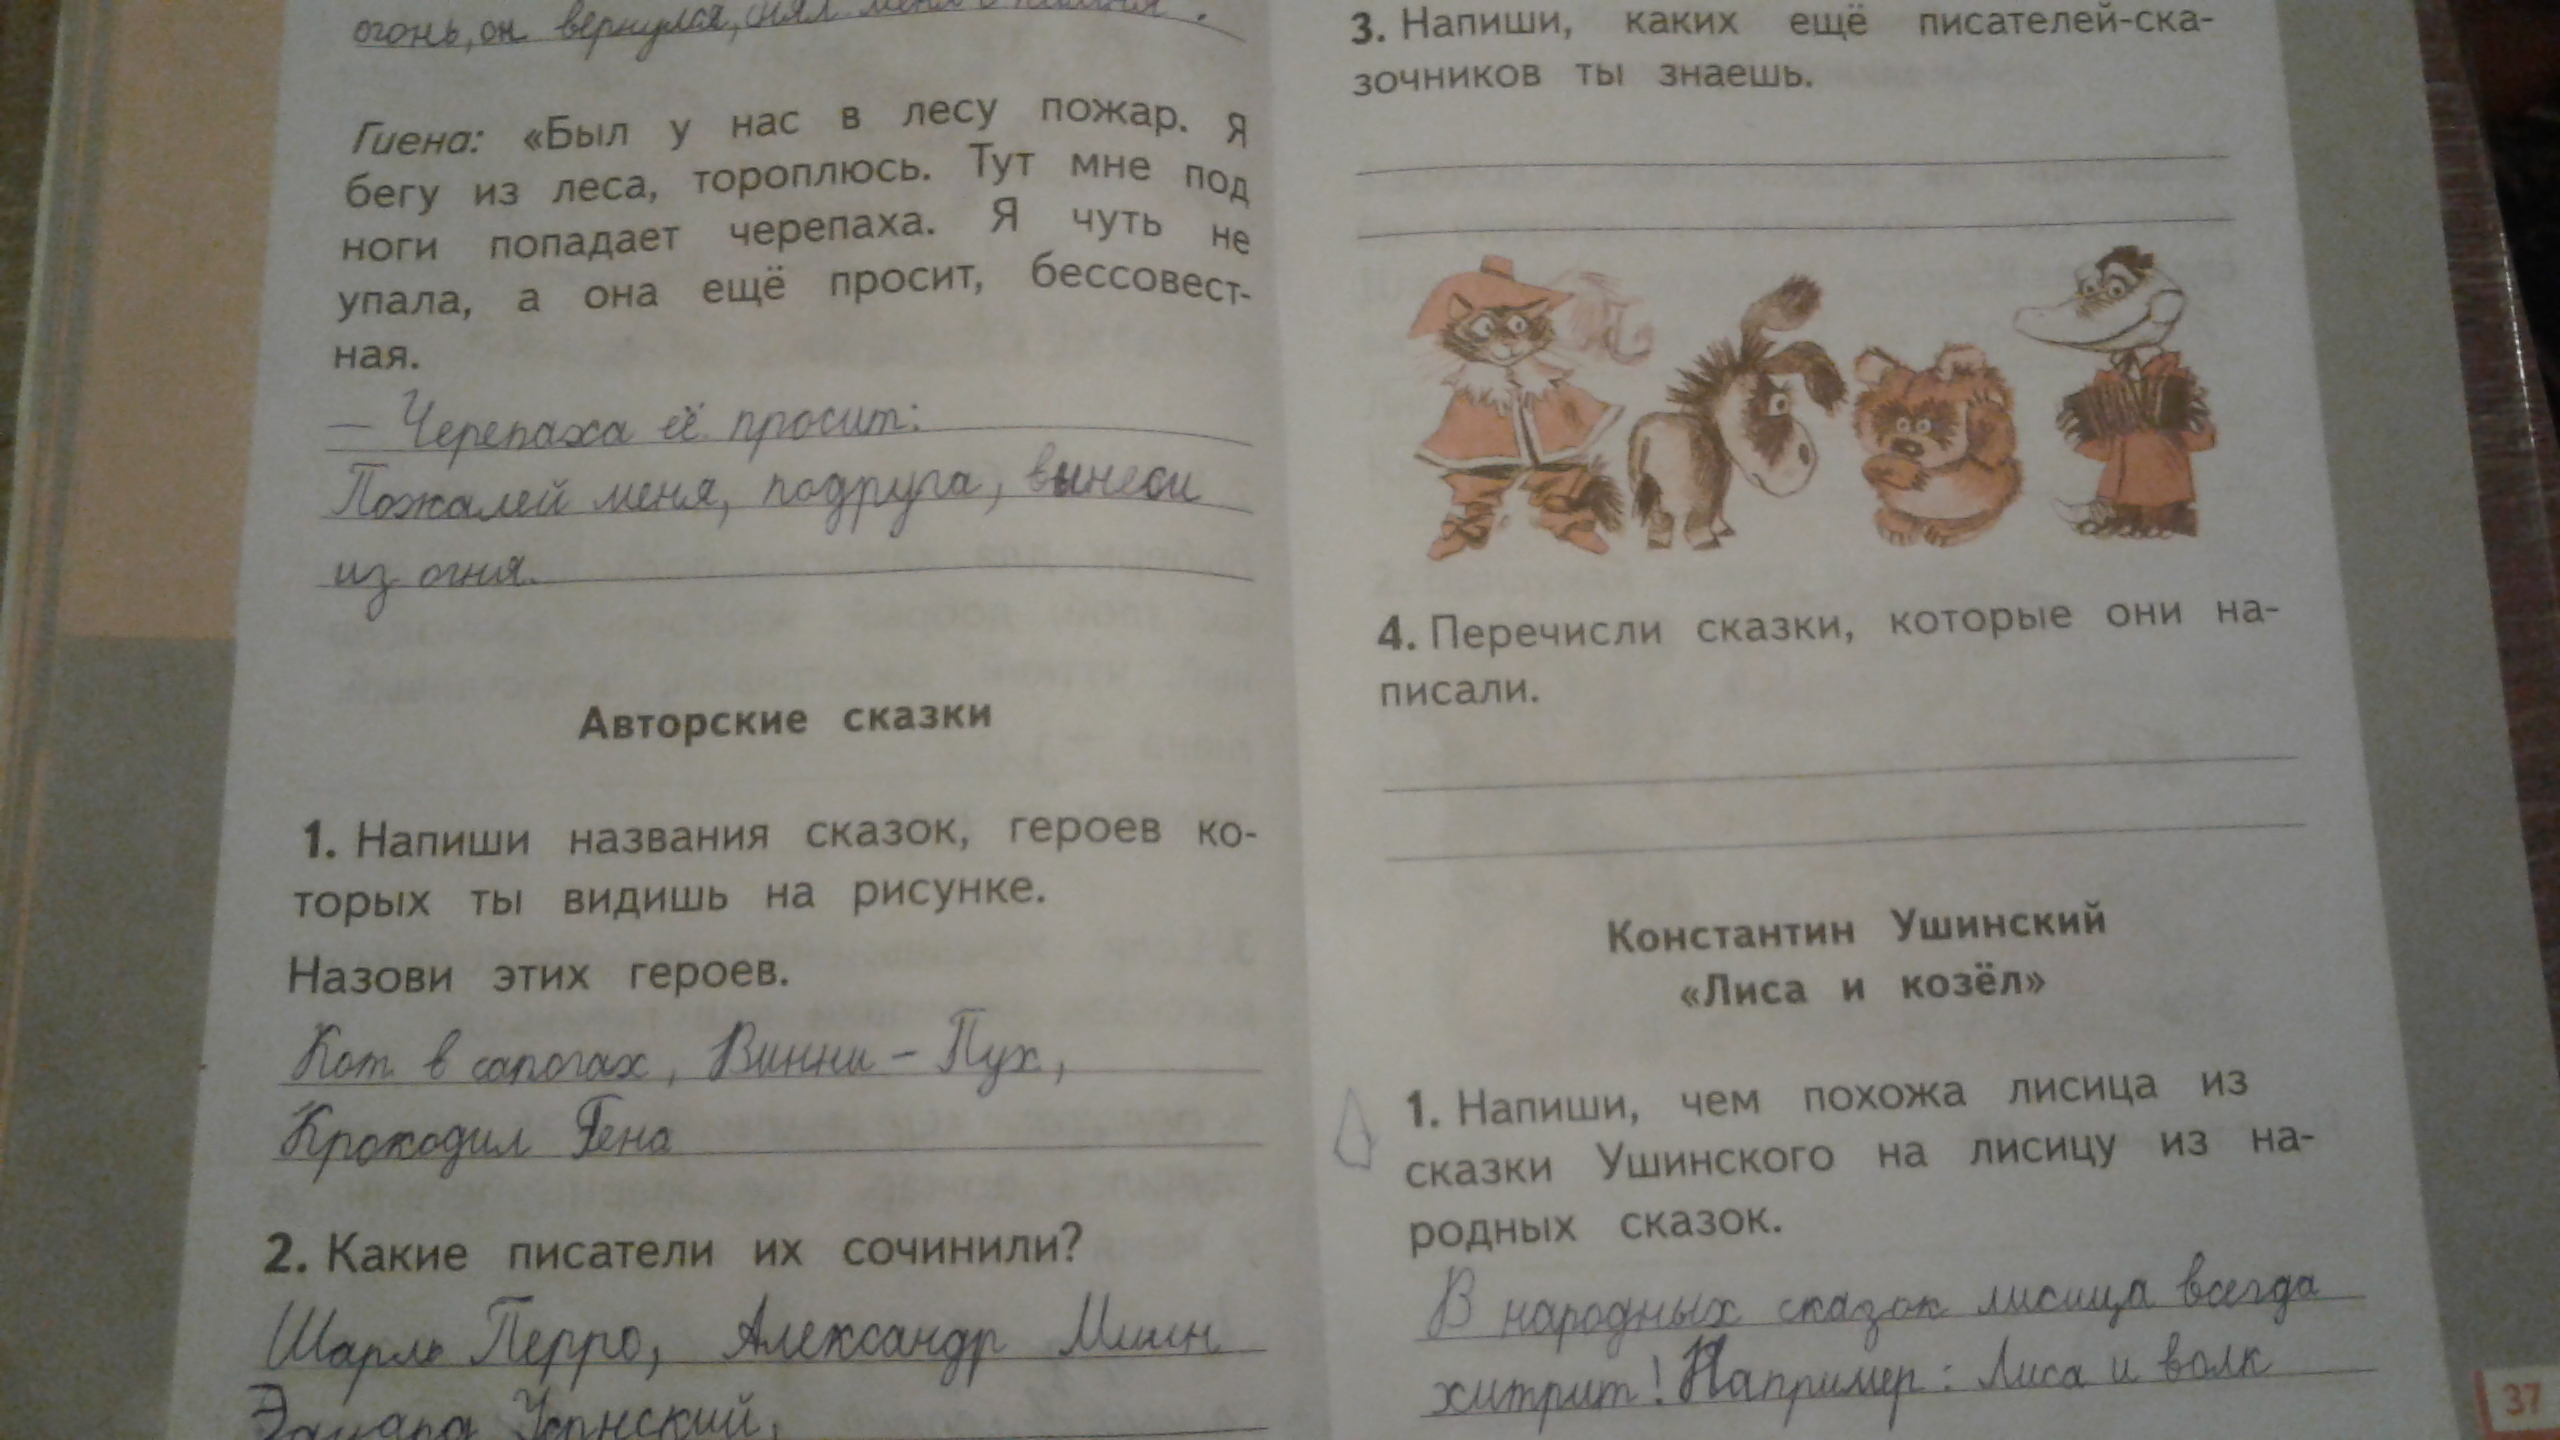 огонь, он вернулся, снял меня с
Гиена: «Был у нас в лесу пожар. Я
бегу из леса, тороплюсь. Тут мне под
ноги попадает черепаха. Я чуть не
упала, а она ещё просит, бессовест-
ная.
— Черепаха её просит:
Пожалей меня, подруга, вынеси
из огня.
Авторские сказки
1. Напиши названия сказок, героев ко-
торых ты видишь на рисунке.
Назови этих героев.
Кот в сапогах, Винни-Пух,
Крокодил Гена
2. Какие писатели их сочинили?
Шарль Перро, Александр Милн
Эдуард Успнский,
3. Напиши, каких ещё писателей-ска-
зочников ты знаешь.
4. Перечисли сказки, которые они на-
писали.
Константин Ушинский
«Лиса и козёл»
1. Напиши, чем похожа лисица из
сказки Ушинского на лисицу из на-
родных сказок.
В народных сказок лисица всегда
хитрит! Например: Лиса и волк
37